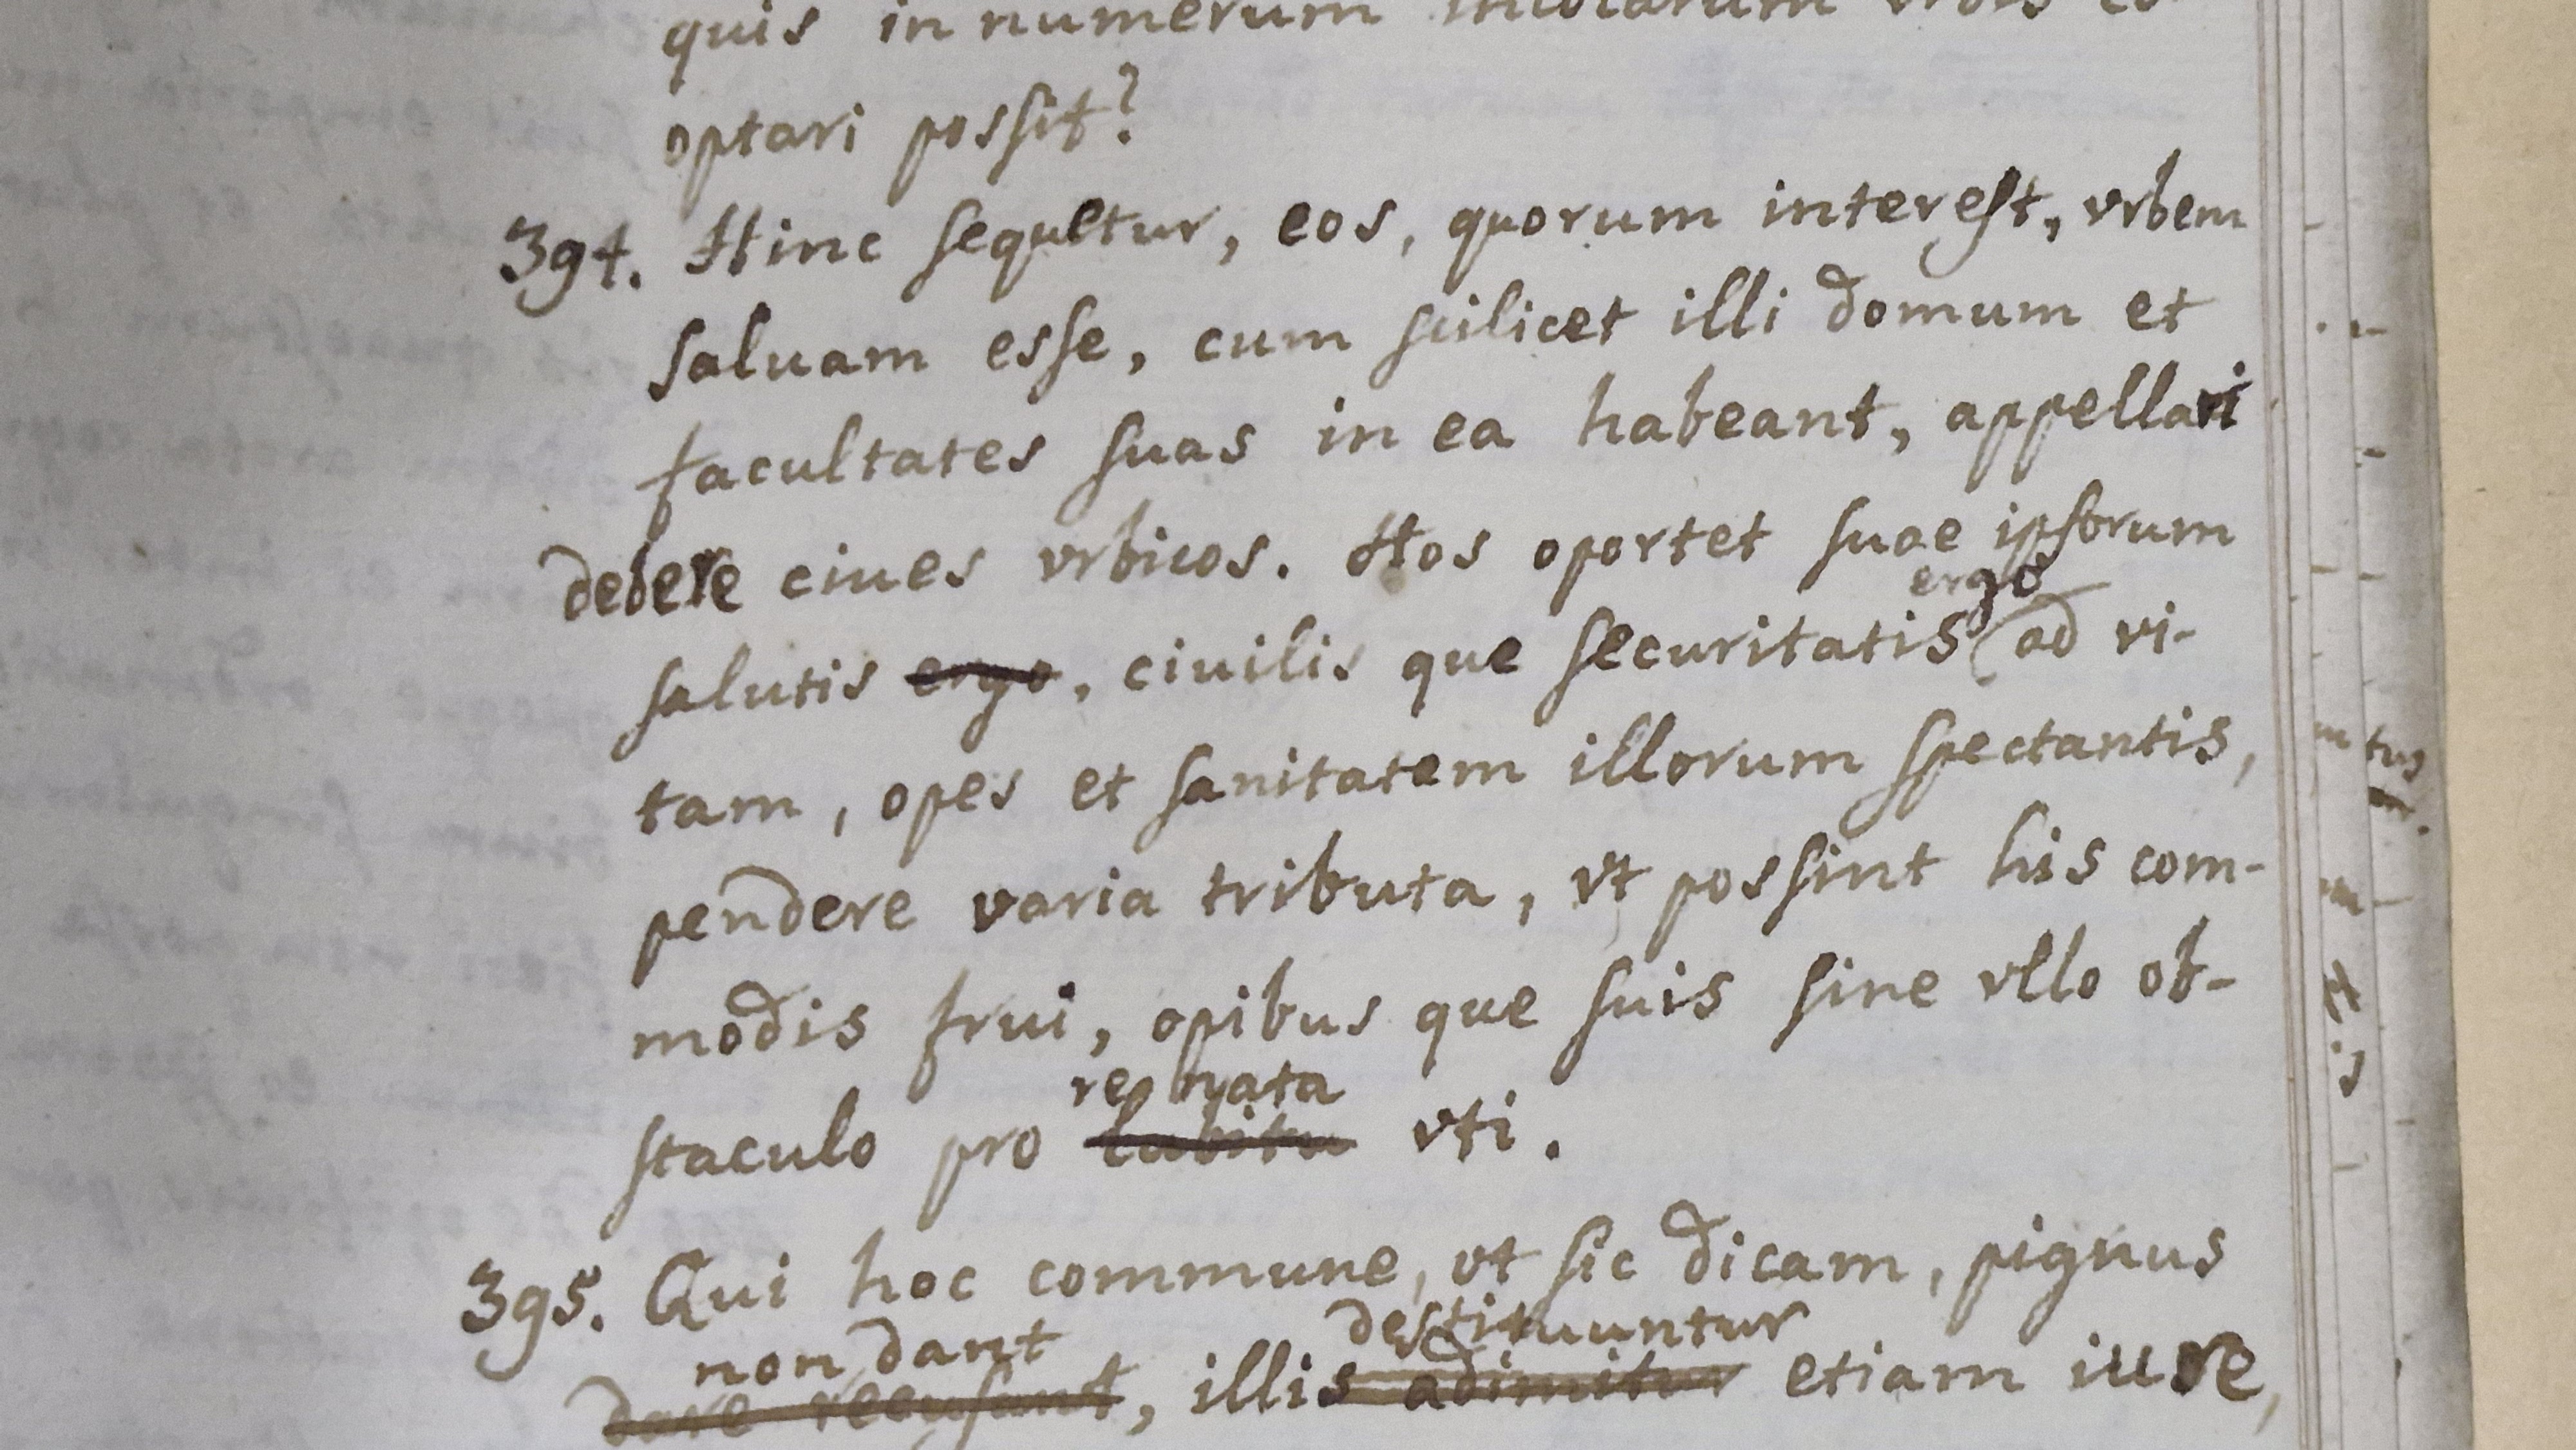 quis in numerum incolarum vrbis co-
optari possit?
394. Hinc sequitur, eos, quorum interest, vrbem
saluam esse, cum scilicet illi domum et
facultates suas in ea habeant, appellari
debere ciues vrbicos. Hos oportet suae ipsorum
ergo
salutis ergo, ciuilis que securitatis ad vi-
tam, opes et sanitatem illorum spectantis,
pendere varia tributa, vt possint his com-
modis frui, opibus que suis sine vllo ob-
re nata
staculo pro lubitu vti.
395. Qui hoc commune, vt sic dicam, pignus
non dant destituuntur
dare recusant, illis adimitur etiam iure,